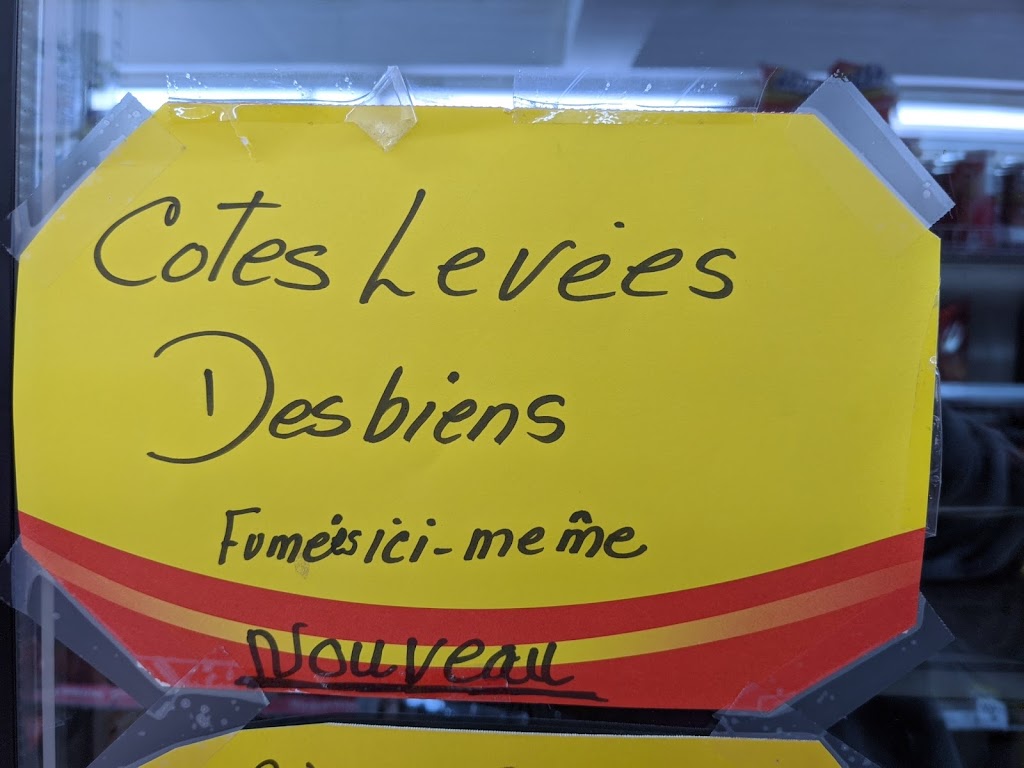 Cotes Levées
Desbiens
Fumées ici-même
Nouveau